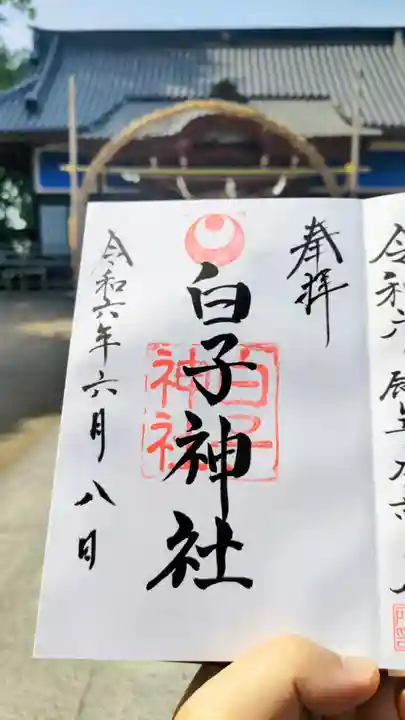 奉拝
白子神社
白子神社
令和六年六月八日